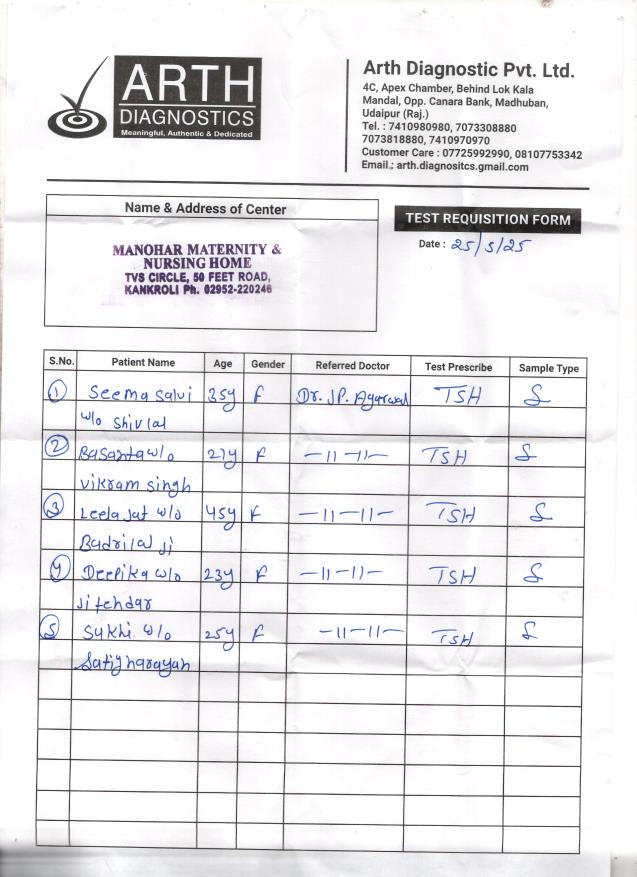 ARTH
DIAGNOSTICS
Meaningful, Authentic & Dedicated
Arth Diagnostic Pvt. Ltd.
4C, Apex Chamber, Behind Lok Kala
Mandal, Opp. Canara Bank, Madhuban,
Udaipur (Raj.)
Tel. : 7410980980, 7073308880
7073818880, 7410970970
Customer Care : 07725992990, 08107753342
Email.: arth.diagnositcs.gmail.com
Name & Address of Center
MANOHAR MATERNITY &
NURSING HOME
TVS CIRCLE, 50 FEET ROAD,
KANKROLI Ph. 02952-220246
TEST REQUISITION FORM
Date : 25/5/25
S.No. Patient Name Age Gender Referred Doctor Test Prescribe Sample Type
1 Seema Salvi 35y F Dr. JP. Agarwal TSH S
w/o Shivlal
2 Basanta w/o 27y F -11-11- TSH S
vikram singh
3 Leela Jat w/o 45y F -11-11- TSH S
Badrilal Ji
4 Deepika w/o 23y F -11-11- TSH S
Jitendar
5 Sukhi w/o 25y F -11-11- TSH S